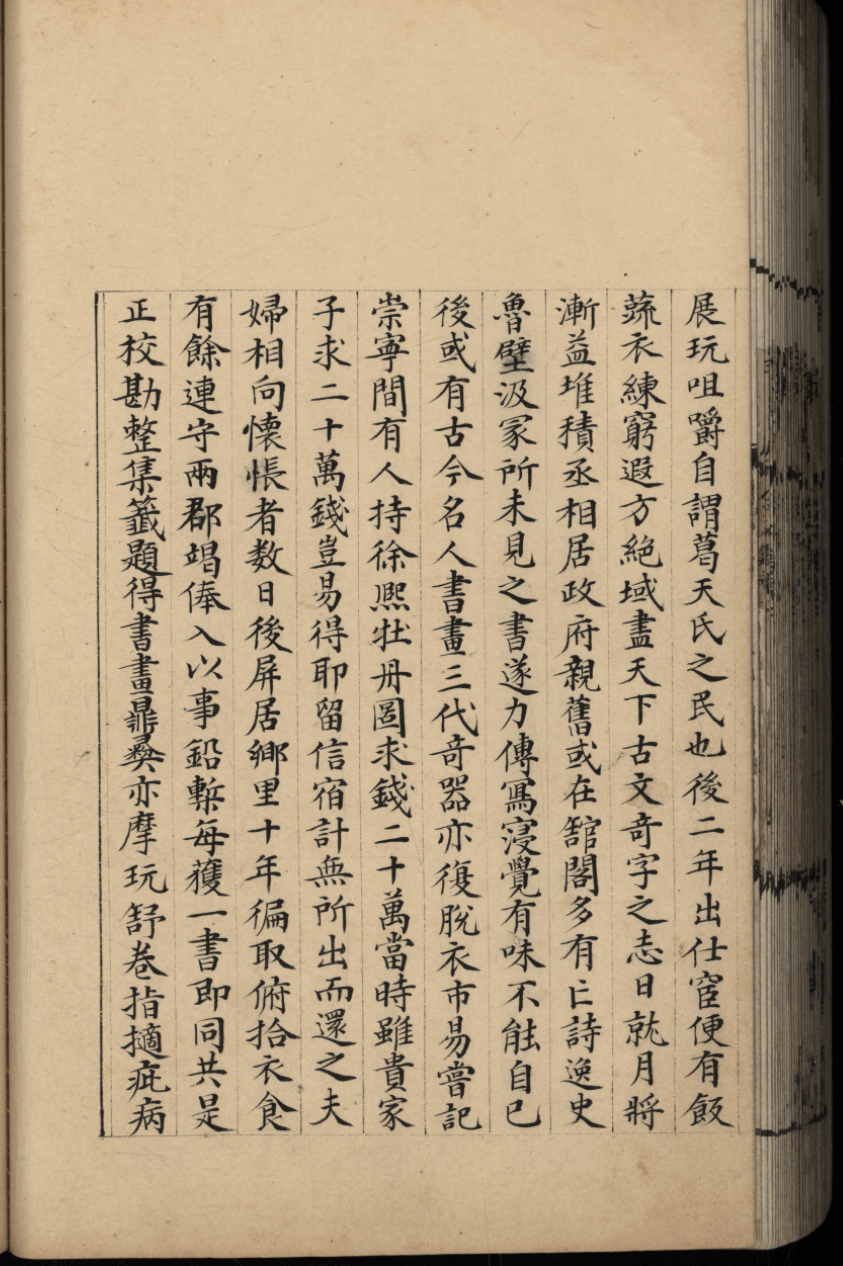 展玩咀嚼自謂葛天氏之民也後二年出仕宦便有飯
蔬衣練窮遐方絶域盡天下古文奇字之志日就月將
漸益堆積丞相居政府親舊或在舘閣多有亡詩逸史
魯壁汲冢所未見之書遂力傳寫寖覺有味不能自已
後或有古今名人書畫三代奇器亦復脫衣市易嘗記
崇寧間有人持徐熈牡丹圖求錢二十萬當時雖貴家
子求二十萬錢豈易得耶留信宿計無所出而還之夫
婦相向惋悵者数日後屏居鄉里十年徧取俯拾衣食
有餘連守兩郡竭俸入以事鉛槧每獲一書即同共是
正校勘整集籤題得書畫鼎彝亦摩玩舒卷指擿疵病